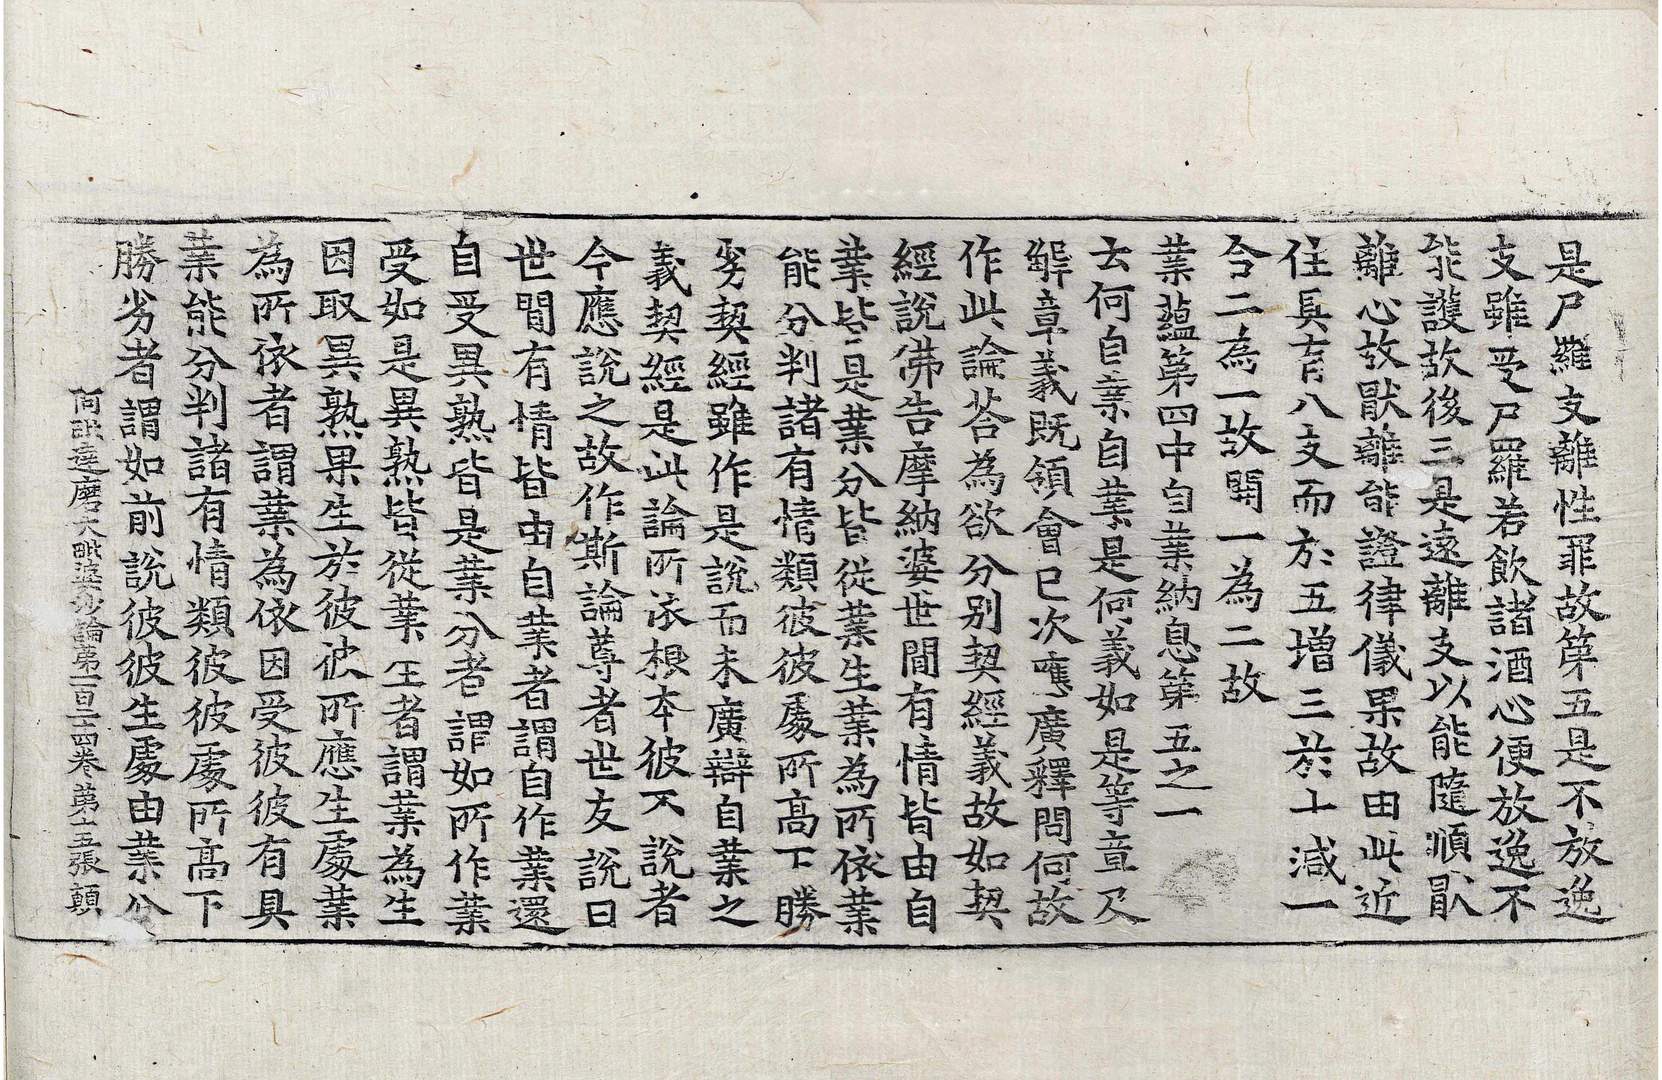 是尸羅支離性罪故第五是不放逸
支雖受尸羅若飲諸酒心便放逸不
能護故後三是遠離支以能隨順猒
離心故猒離能證律儀果故由此近
住具有八支而於五增三於十減一
合二為一故開一為二故
業蘊第四中自業納息第五之一
云何自業自業是何義如是等章及
解章義既領會已次應廣釋問何故
作此論荅為欲分別契經義故如契
經說佛告摩納婆世間有情皆由自
業皆是業分皆從業生業為所依業
能分判諸有情類彼彼處所高下勝
劣契經雖作是說而未廣辯自業之
義契經是此論所依根本彼不說者
今應說之故作斯論尊者世友說曰
世間有情皆由自業者謂自作業還
自受異熟皆是業分者謂如所作業
受如是異熟皆從業生者謂業為生
因取異熟果生於彼彼所應生處業
為所依者謂業為依因受彼彼有具
業能分判諸有情類彼彼處所高下
勝劣者謂如前說彼彼生處由業分
阿毗達磨大毗婆沙論第一百二十四卷 第十五張 顛